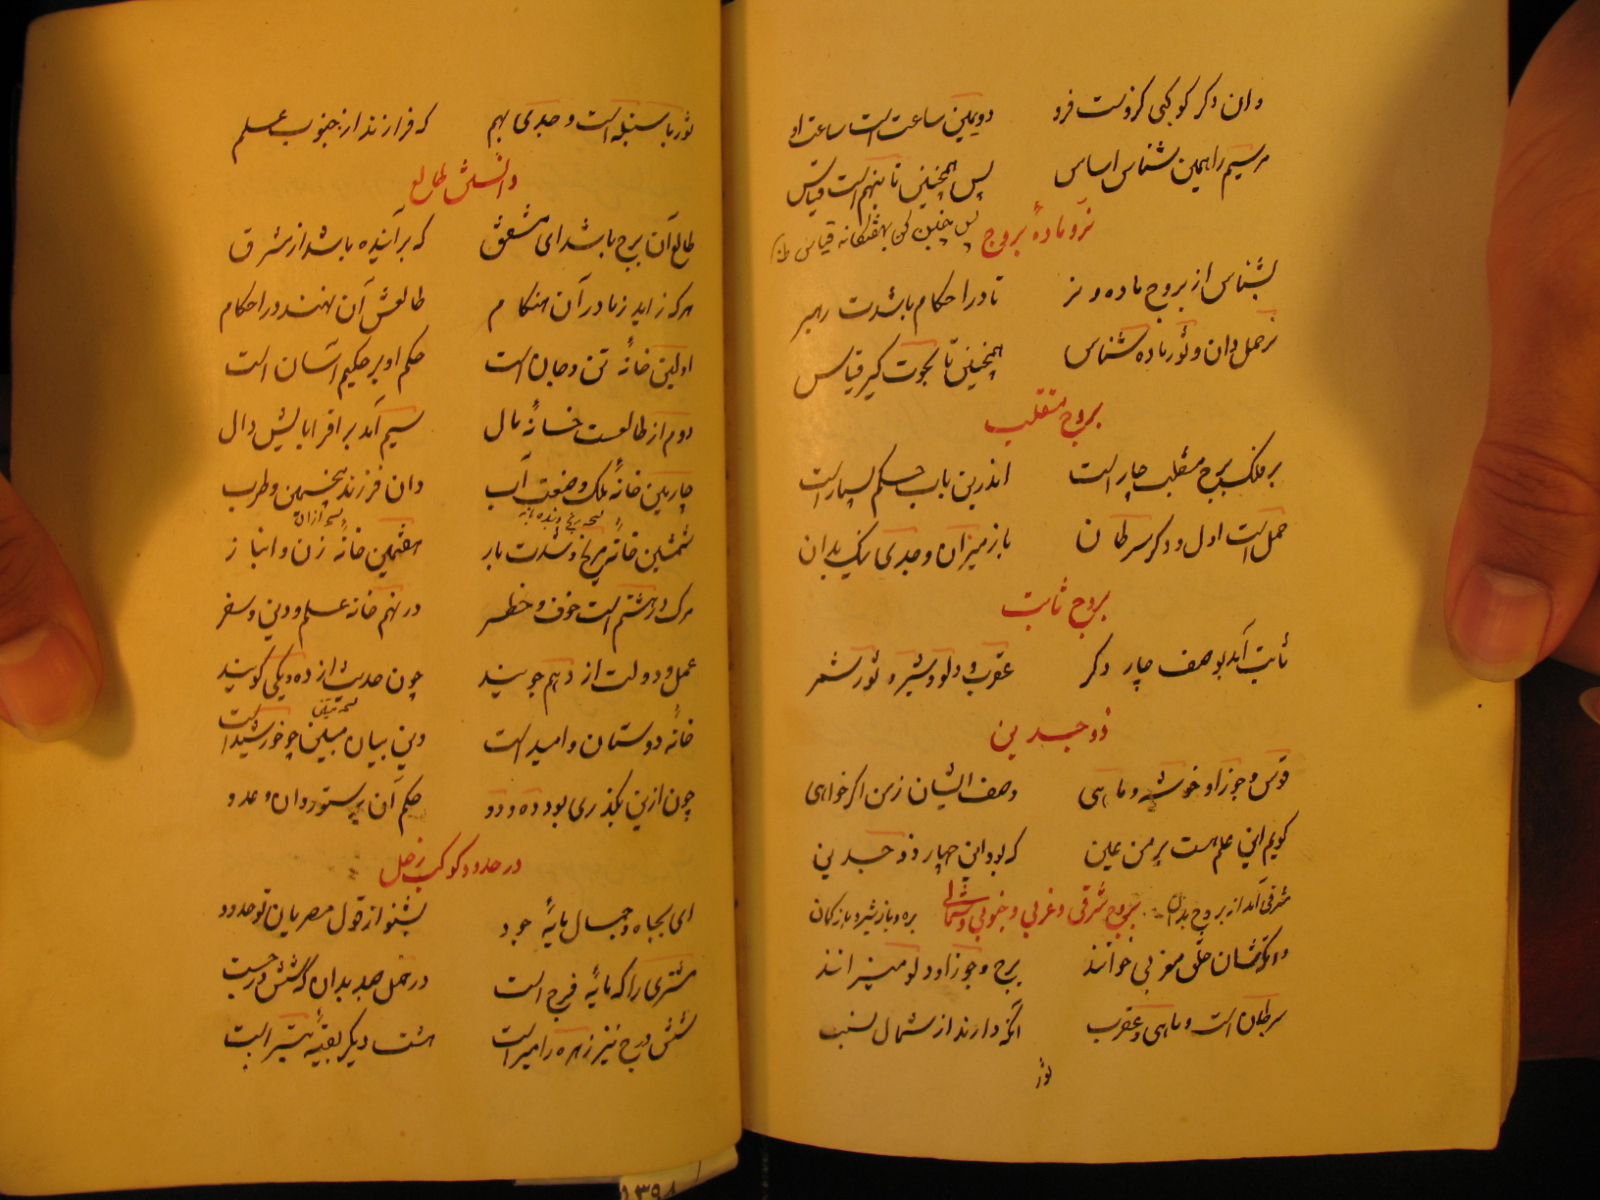 وان دكر كوكبی كزوست فرو دویمین ساعت است ساعت او
مرسیم را همین شناس اساس پس همچنین تا بنهم است قیاس
نر و مادهٔ بروج پس چنین كن بهفتگانه قیاس
بشناس از بروج ماده و نر تا در احكام باشدت رهبر
نر حمل دان و ثور ماده شناس همچنین تا بحوت گیر قیاس
بروج منقلب
بر فلك برج منقلب چار است اندرین باب حكم بسیار است
حمل است اول و دكر سرطان باز میزان و جدی نیك بدان
بروج ثابت
ثابت آمد بوصف چار دكر عقرب و دلو و شیر و ثور شمر
ذو جسدین
قوس و جوزا و خوشه و ماهی وصف ایشان ز من اكر خواهی
كویم این علم هست بر من عین كه بود این چهار ذو جسدین
بروج شرقی و غربی و جنوبی و شمالی
شرقی آمد از بروج بدان بره و باز شیر و باز كمان
وانكه شان خلق مغربی خوانند برج جوزا و دلو و میزانند
سرطان است و ماهی و عقرب آنكه دارند از شمال نسب
ثور
ثور با سنبله است و جدی بهم كه فرازند از جنوب علم
دانستن طالع
طالع آن برج باشد ای مشفق كه برآینده باشد از مشرق
هركه زاید ز مادر آن هنكام طالعش آن نهند در احكام
اولین خانهٔ تن و جان است حكم او بر حكیم آسان است
دوم از طالعست خانهٔ مال سیم آمد بر اقربا بیش دال
چارمین خانهٔ ملك و ضیعت آب دان فرزند پنجمین و طرب
ششمین خانه رنج و شدت بار هفتمین خانهٔ زن و انباز
مرك در هشتم است خوف و خطر در نهم خانه علم و دین و سفر
عمل و دولت از دهم جویند چون حدیث از ده و یكی كویند
خانهٔ دوستان و امید است وین بیان مبین چو خورشید است
چون ازین بكذری بود ده و دو حكم آن بر ستور دان و عدو
در حدود كوكب زحل
ای بجاه و جمال مایهٔ جود بشنو از قول مصریان تو حدود
مشتری را كه مایهٔ فرح است در حمل حد بدان كه شش درجست
شش درج نیز زهره را میر است هشت دیكر بقیه تیر است